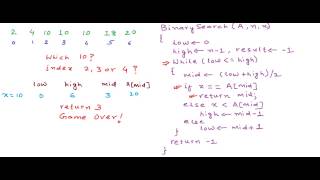 2 4 10 10 10 18 20
0 1 2 3 4 5 6
Which 10?
index 2, 3 or 4 ?
low high mid A[mid]
x=10 0 6 3 10
return 3
Game over!
BinarySearch (A, n, x)
{
low ← 0
high ← n-1, result ← -1
While (low <= high)
{
mid ← (low+high)/2
if x == A[mid]
return mid;
else x < A[mid]
high ← mid-1
else
low ← mid+1
}
return -1